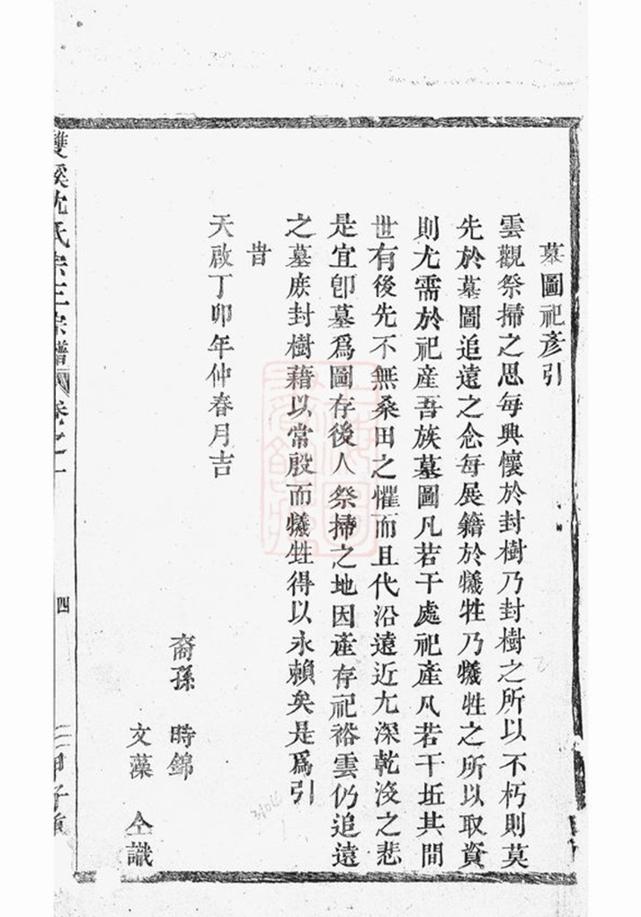 墓圖祀彥引
雲觀祭掃之思每興懷於封樹乃封樹之所以不朽則莫
先於墓圖追遠之念每展籍於犧牲乃犧牲之所以取資
則尤需於祀產吾族墓圖凡若干處祀產凡若干坵其間
世有後先不無桑田之懼而且代沿遠近尢深乾沒之悲
是宜卽墓爲圖存後人祭掃之地因產存祀裕雲仍追遠
之墓庻封樹藉以常殷而犧牲得以永賴矣是爲引
旹
天啟丁卯年仲春月吉
裔孫 時錦
文藻 仝識
雙溪沈氏宗三宗譜 卷之一
四
甲子